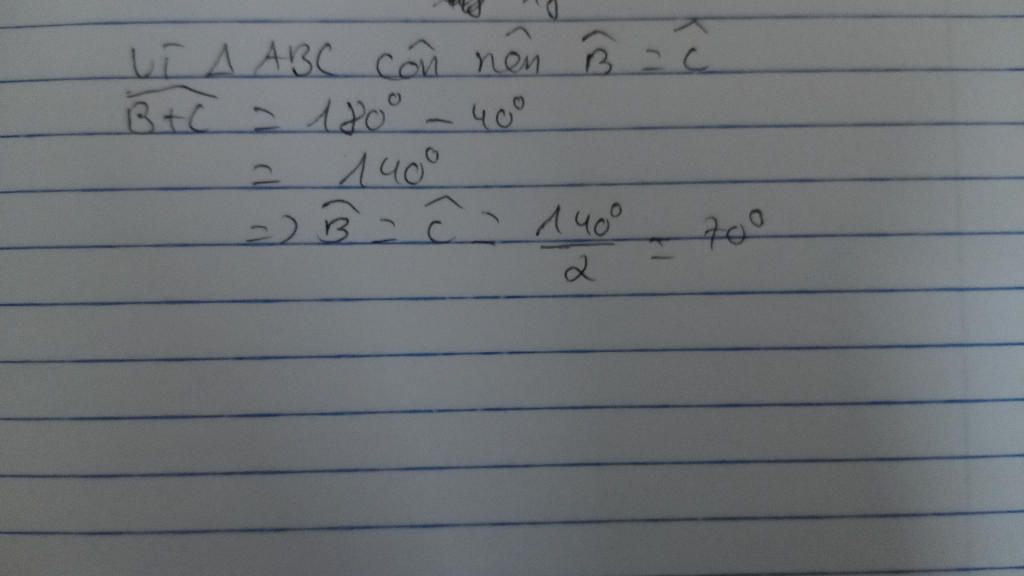 Vì Δ ABC cân nên B̂ = Ĉ
B+C = 180⁰ - 40⁰
= 140⁰
=> B̂ = Ĉ = 140⁰/2 = 70⁰